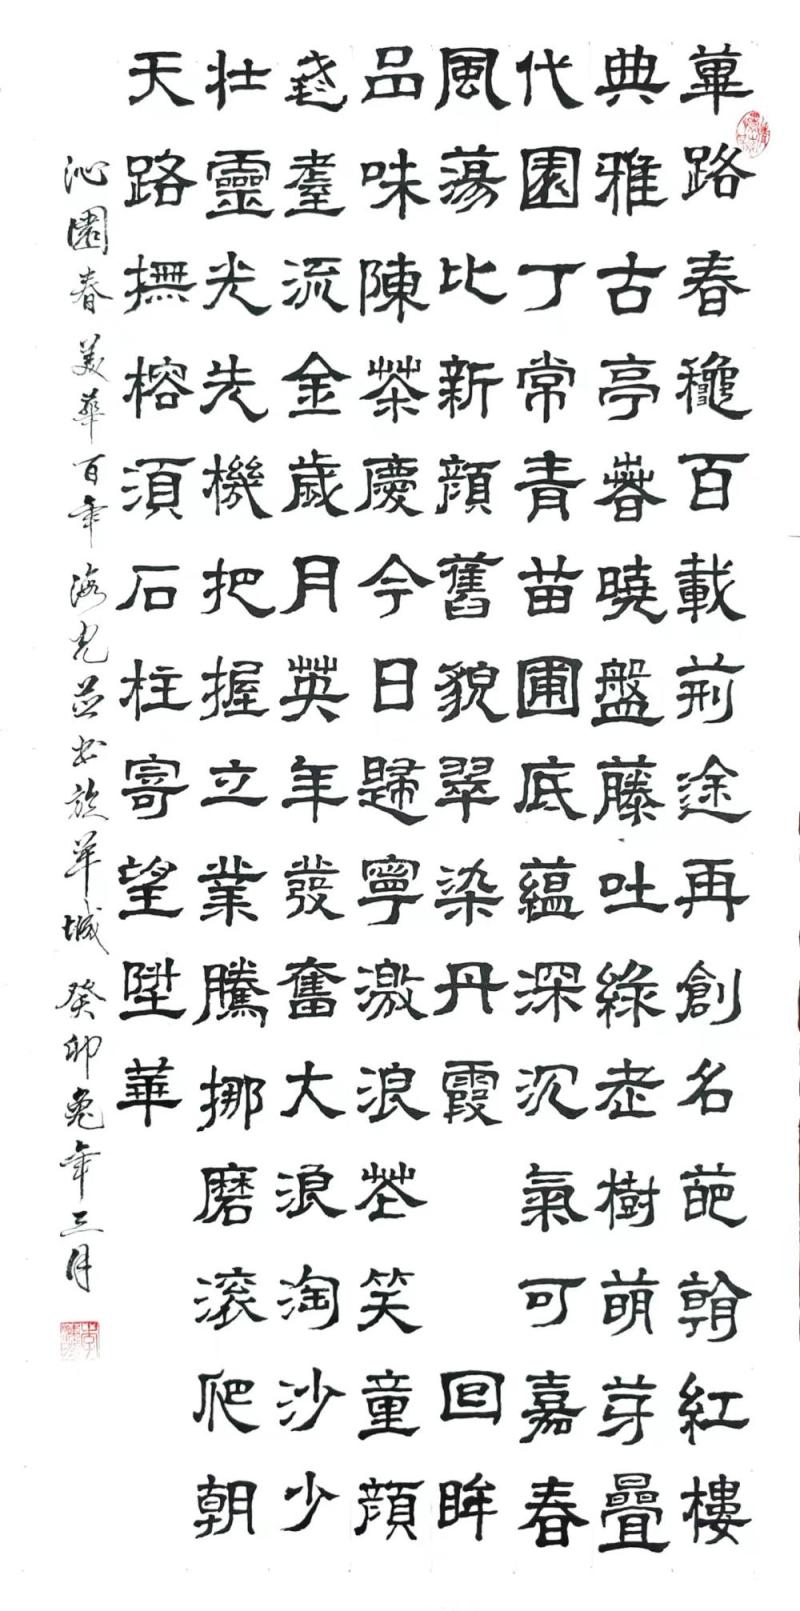 蓽路春穐百載荊途再創名葩翰紅樓
典雅古亭萶曉盤藤吐綠老樹萌芽疊
代園丁常青苗圃底蘊深沉氣可嘉春
風蕩比新顏舊貌翠染丹霞 回眸
品味陳茶慶今日歸寧激浪花笑童顏
耄耋流金歲月英年發奮大浪淘沙少
壯靈光先機把握立業騰挪磨滾爬朝
天路撫榕須石柱寄望陞華
沁園春 美華百年 海 並書於羊城 癸卯兔年三月